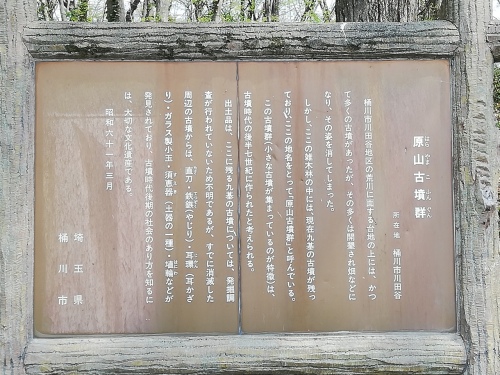 はら やま こ ふん ぐん
原山古墳群
所在地 桶川市川田谷
桶川市川田谷地区の荒川に面する台地の上には、かつ
て多くの古墳があったが、その多くは開墾され畑などに
なり、その姿を消してしまった。
しかし、ここの雑木林の中には、現在九基の古墳が残っ
ており、ここの地名をとって「原山古墳群」と呼んでいる。
この古墳群(小さな古墳が集まっているのが特徴)は、
古墳時代の後半七世紀に作られたと考えられる。
出土品は、ここに残る九基の古墳については、発掘調
査が行われていないため不明であるが、すでに消滅した
周辺の古墳からは、直刀・鉄鏃(やじり)・耳環(耳かざ
り)・ガラス製小玉・須恵器(土器の一種)・埴輪などが
発見されており、古墳時代後期の社会のあり方を知るに
は、大切な文化遺産である。
昭和六十一年三月
埼玉県
桶川市